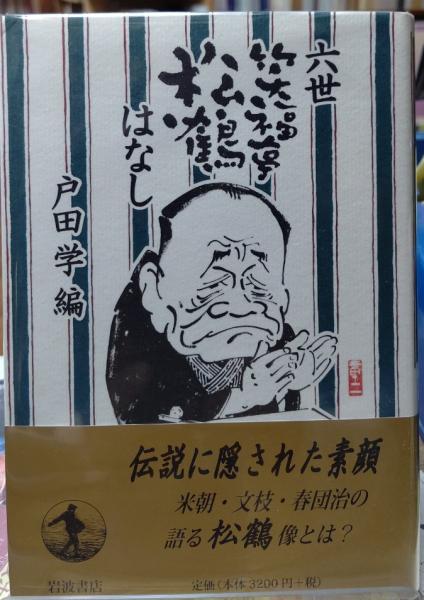 六世
笑福亭
松鶴
はなし
戸田学編
伝説に隠された素顔
米朝・文枝・春団治の
語る松鶴像とは？
岩波書店
定価(本体3200円+税)